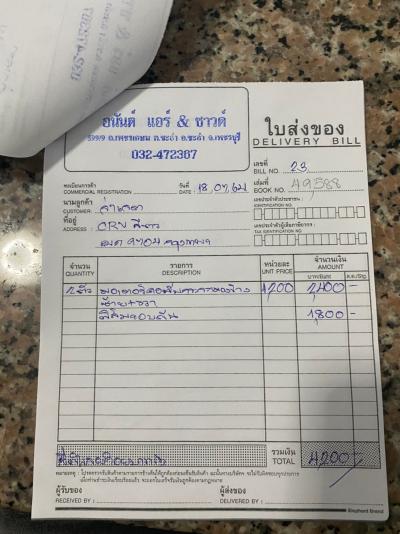 อนันต์ แอร์ & ซาวด์
599/9 ถ.เพชรเกษม ต.ชะอำ อ.ชะอำ จ.เพชรบุรี
032-472387
ใบส่งของ
DELIVERY BILL
เลขที่
BILL NO. 23
ทะเบียนการค้า
COMMERCIAL REGISTRATION
วันที่
DATE : 18,07,64
เล่มที่
BOOK NO. 49588
นามลูกค้า
CUSTOMER:
เลขประจำตัวประชาชน :
IDENTIFICATION NO.
ที่อยู่
ADDRESS : CRV สีขาว
เลขประจำตัวผู้เสียภาษีอากร :
TAX IDENTIFICATION NO.
9704 กรุงเทพฯ
จำนวน
QUANTITY
รายการ
DESCRIPTION
หน่วยละ
UNIT PRICE
จำนวนเงิน
AMOUNT
บาท/Baht ส.ต./Stg.
2 ตัว 1,200 2,400 -
ซ้าย+ขวา
ฟิล์มรอบคัน 1,800 -
รวมเงิน
TOTAL 4,200 -
ผู้รับของ
RECEIVED BY :
ผู้ส่งของ
DELIVERED BY :
Elephant Brand